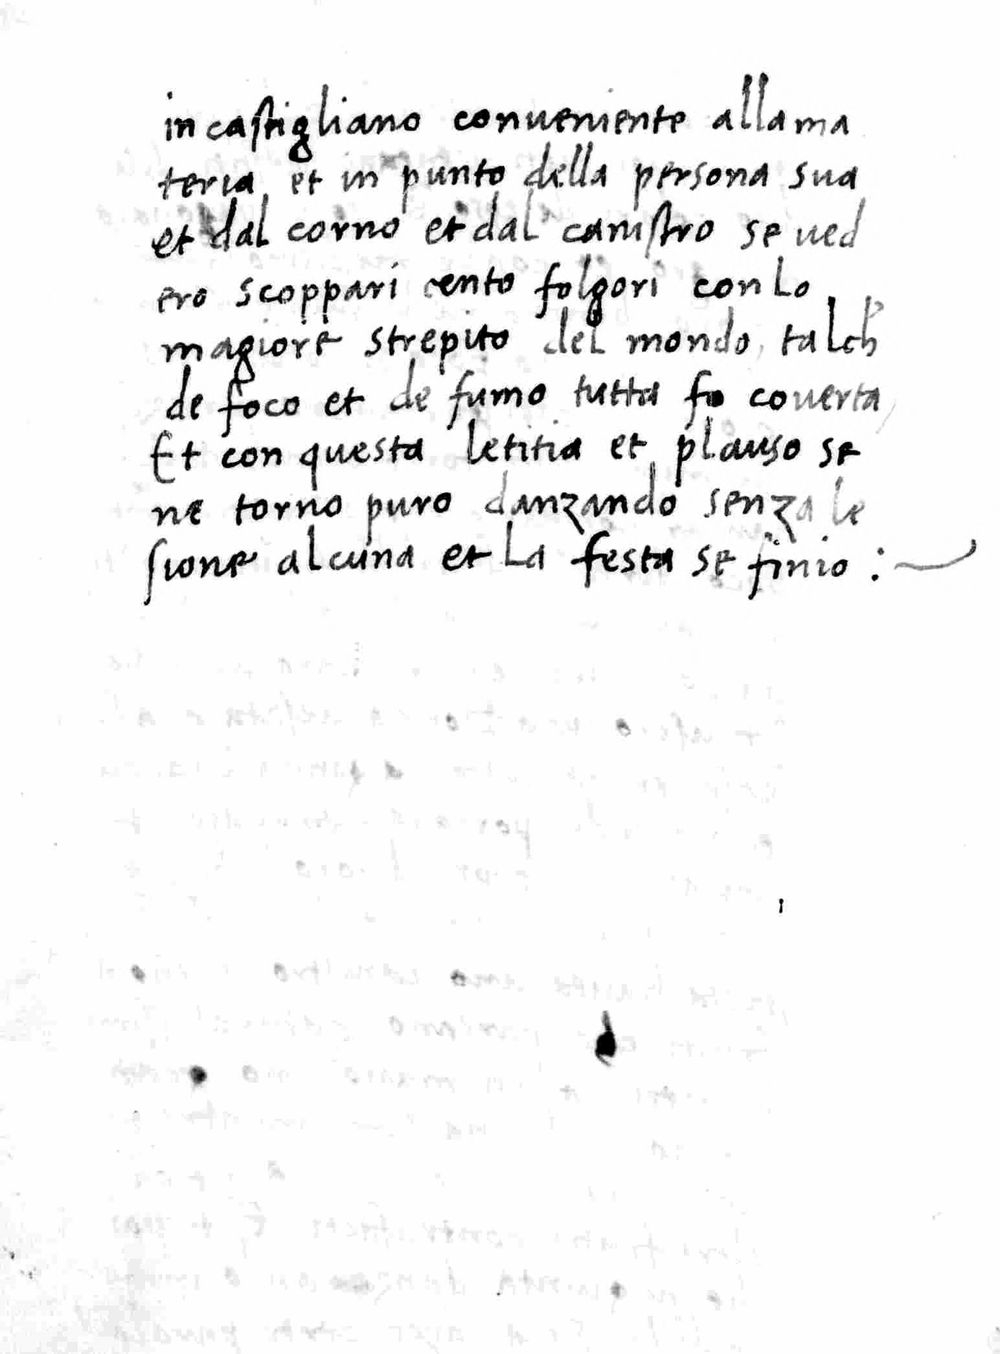 in castigliano conveniente alla ma
teria et in punto della persona sua
et dal corno et dal canistro se ved
ero scoppari cento folgori con lo
magiore strepito del mondo, talch
de foco et de fumo tutta fo coverta
Et con questa letitia et plauso se
ne torno puro danzando senza le
sione alcuna et la festa se finio :